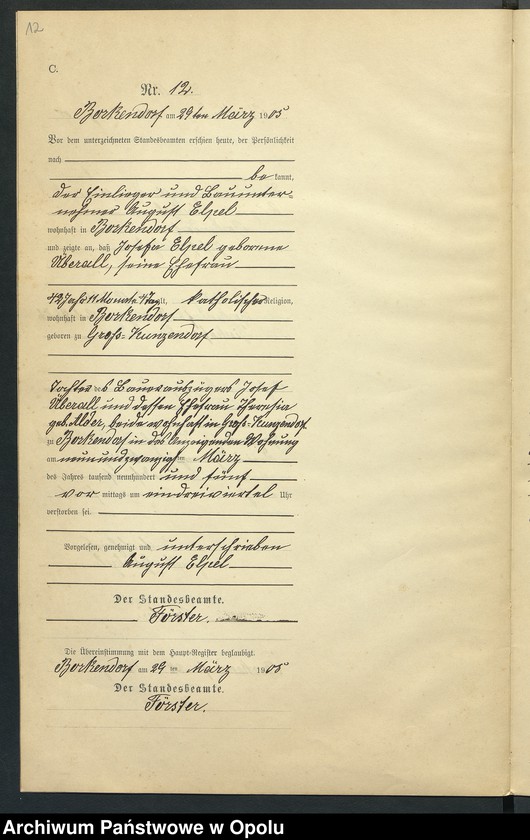 12
C.
Nr. 12.
Borkendorf am 29ten März 1905
Vor dem unterzeichneten Standesbeamten erschien heute, der Persönlichkeit
nach
bekannt,
der Einlieger und Bauunter-
nehmer August Elpel
wohnhaft in Borkendorf
und zeigte an, daß Josefa Elpel geborene
Überall, seine Ehefrau
42 Jahr 11 Monate alt, katholischer Religion,
wohnhaft in Borkendorf
geboren zu Groß-Kunzendorf
Tochter des Bauerauszügers Josef
Überall und dessen Ehefrau Theresia
geb. Alder, beide wohnhaft in Groß-Kunzendorf
zu Borkendorf in des Anzeigenden Wohnung
am neunundzwanzigsten März
des Jahres tausend neunhundert und fünf
vor mittags um eindreiviertel Uhr
verstorben sei.
Vorgelesen, genehmigt und unterschrieben
August Elpel
Der Standesbeamte.
Förster.
Die Übereinstimmung mit dem Haupt-Register beglaubigt.
Borkendorf am 29 ten März 1905
Der Standesbeamte.
Förster.
Archiwum Państwowe w Opolu